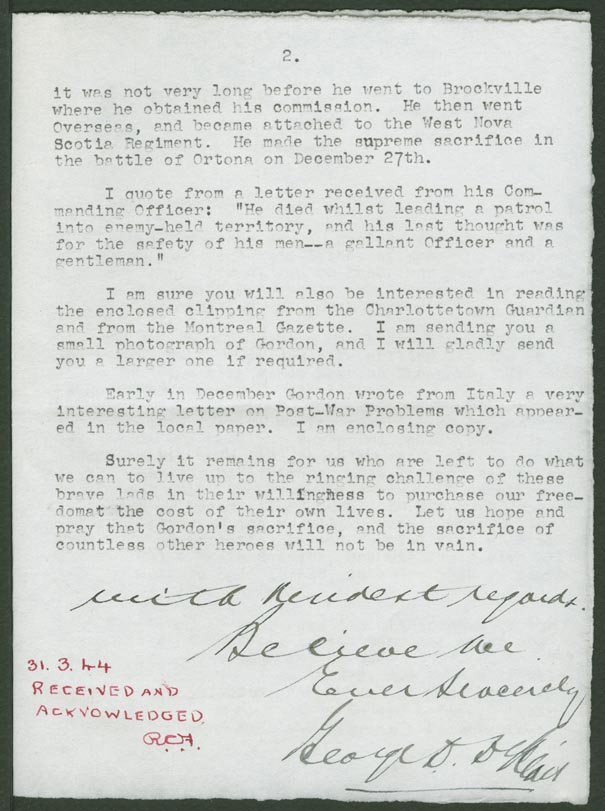 2.
it was not very long before he went to Brockville
where he obtained his commission.  He then went
Overseas, and became attached to the West Nova
Scotia Regiment.  He made the supreme sacrifice in
the battle of Ortona on December 27th.
I quote from a letter received from his Com-
manding Officer:  "He died whilst leading a patrol
into enemy-held territory, and his last thought was
for the safety of his men--a gallant Officer and a
gentleman."
I am sure you will also be interested in reading
the enclosed clipping from the Charlottetown Guardian
and from the Montreal Gazette.  I am sending you a
small photograph of Gordon, and I will gladly send
you a larger one if required.
Early in December Gordon wrote from Italy a very
interesting letter on Post-War Problems which appear-
ed in the local paper.  I am enclosing copy.
Surely it remains for us who are left to do what
we can to live up to the ringing challenge of these
brave lads in their willinghess to purchase our free-
domat the cost of their own lives.  Let us hope and
pray that Gordon's sacrifice, and the sacrifice of
countless other heroes will not be in vain.
with kindest regards.
Believe me
Ever sincerely
George D.
31.3.44
RECEIVED AND
ACKNOWLEDGED.